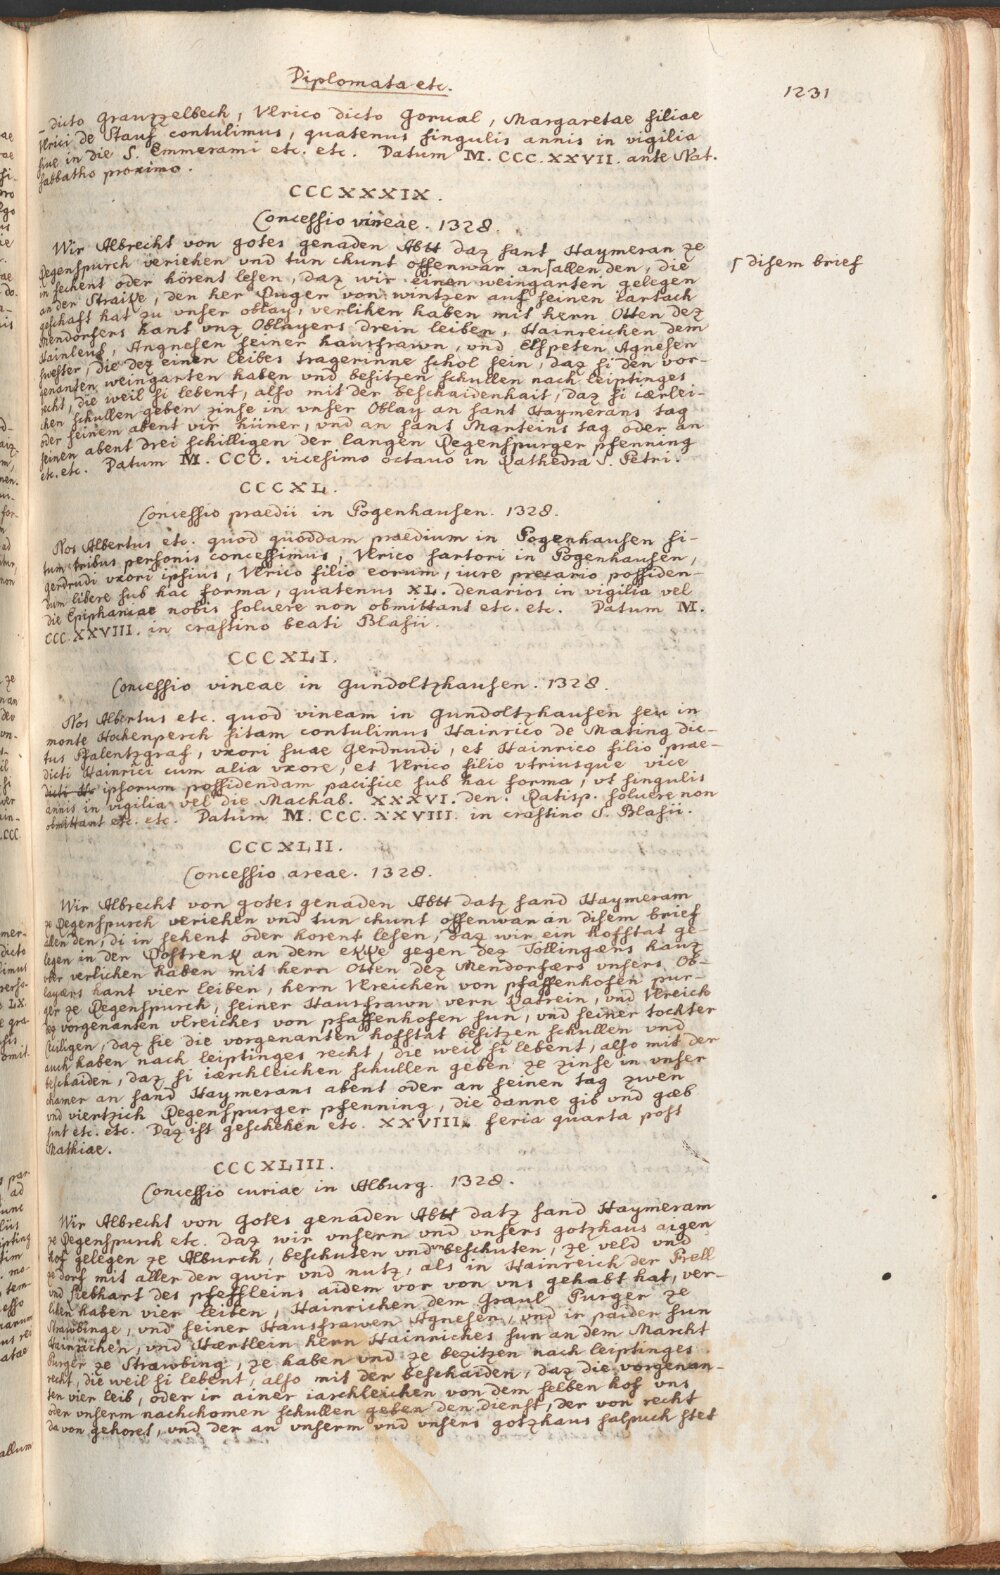 Diplomata etc.
1231
– dicto Granzzelbeck, Vlrico dicto Gorual, Margaretae filiae
Vlrici de Stauf contulimus, quatenus singulis annis in vigilia
siue in die S. Emmerami etc. etc. Datum M. CCC. XXVII. ante Nat.
sabbatho proximo.
CCCXXXIX.
Concessio vineae. 1328.
Wir Albrecht von gotes genaden Abtt daz sant Haymeran ze
Regenspurch veriehen vnd tun chunt offenwar an ⌠allen den, die
⌠ disem brief
in sechent oder hörent lesen, daz wir einen weingarten gelegen
an der Straize, den her Ruger von wintzer auf seinen lartach
geschaft hat zu vnser oblay, verlihen haben mit hern Otten dez
Mendorfers hant vnz Oblayers drein leiben, Hainreichen dem
Hainleus, Angnesen seiner hausfrawn, vnd Elspeten Agnesen
swester, die dez einen leibes tragerinne schol sein, daz si den vor-
genanten weingarten haben vnd besitzen schullen nach leiptinges
recht, die weil si lebent, also mit der beschaidenhait, daz si iærlei-
chen schullen geben zinse in vnser Oblay an sant Haymerans tag
oder seinem abent vir hüner, vnd an sant Marteins tag oder an
seinen abent drei schilligen der langen Regenspurger pfenning
etc. etc. Datum M. CCC. vicesimo octauo in Kathedra S. Petri.
CCCXL.
Concessio praedii in Pogenhausen. 1328.
Nos Albertus etc. quod quoddam praedium in Pogenhausen si-
tum tribus personis concessimus, Vlrico sartori in Pogenhausen,
Gerdrudi vxori ipsius, Vlrico filio eorum, iure precario possiden-
dum libere sub hac forma, quatenus XL. denarios in vigilia vel
die Epiphaniae nobis soluere non obmittant etc. etc. Datum M.
CCC. XXVIII. in crastino beati Blasii.
CCCXLI.
Concessio vineae in Gundoltzhausen. 1328.
Nos Albertus etc. quod vineam in Gundoltzhausen seu in
monte Hochenperch sitam contulimus Hainrico de Mating dic-
tus Pfalentzgraf, vxori suae Gerdrudi, et Hainrico filio prae-
dicti Hainrici cum alia vxore, et Vlrico filio vtriusque vice
ipsorum possidendam pacifice sub hac forma, vt singulis
annis in vigilia vel die Machab. XXXVI. den. Ratisp. soluere non
obmittant etc. etc. Datum M. CCC. XXVIII. in crastino S. Blasii.
CCCXLII.
Concessio areae. 1328.
Wir Albrecht von gotes genaden Abtt datz sand Haymeram
ze Regenspurch veriehen vnd tun chunt offenwar an disem brief
allen den, di in sehent oder horent lesen, daz wir ein hofstat ge-
legen in der Rostrenk an dem ekke gegen dez Tollingærs hauz
vber verlichen haben mit hern Otten dez Mendorfærs vnsers Ob-
layærs hant vier leiben, hern Vlreichen von pfaffenhofen pur-
ger ze Regenspurch, seiner Hausfrawn vern Katrein, vnd Vlreich
dez vorgenanten vlreiches von pfaffenhofen sun, vnd seiner tochter
Heiligen, daz sie die vorgenanten hofstat besitzen schullen vnd
auch haben nach leiptinges recht, die weil si lebent, also mit der
beschaiden, daz si iærchleichen schullen geben ze zinse in vnser
chamer an sand Haymerans abent oder an seinen tag zwen
vnd viertzich Regenspurger pfenning, die danne gib vnd gæb
sint etc. etc. Daz ist geschehen etc. XXVIII. feria quarta post
Mathiae.
CCCXLIII.
Concessio curiae in Alburg. 1328.
Wir Albrecht von Gotes genaden Abtt datz sand Haymeram
ze Regenspurch etc. daz wir vnsern vnd vnsers gotzhaus aigen
hof gelegen ze Alburch, beschuten vnd vnbeschuten, ze veld vnd
ze dorf mit aller den gwir vnd nutz, als in Hainreich der Prell
vnd Liebhart des pfeffleins aidem vor von vns gehabt hat, ver-
lihen haben vier leiben, Hainrichen dem Graul Purger ze
Strawbinge, vnd seiner Hausfrawen Agnesen, vnd ir paider sun
Hainrichen, vnd Hærtlein hern Hainriches sun an dem Marcht
Purger ze Strawbing, ze haben vnd ze bezitzen nach leiptinges
recht, die weil si lebent, also mit der beschaiden, daz die vorgenan-
ten vier leib, oder ir ainer iarchleichen von dem selben hof vns
oder vnserm nachchomen schullen geben den dienst, der von recht
da von gehoret, vnd der an vnserm vnd vnsers gotzhaus salpuch stet